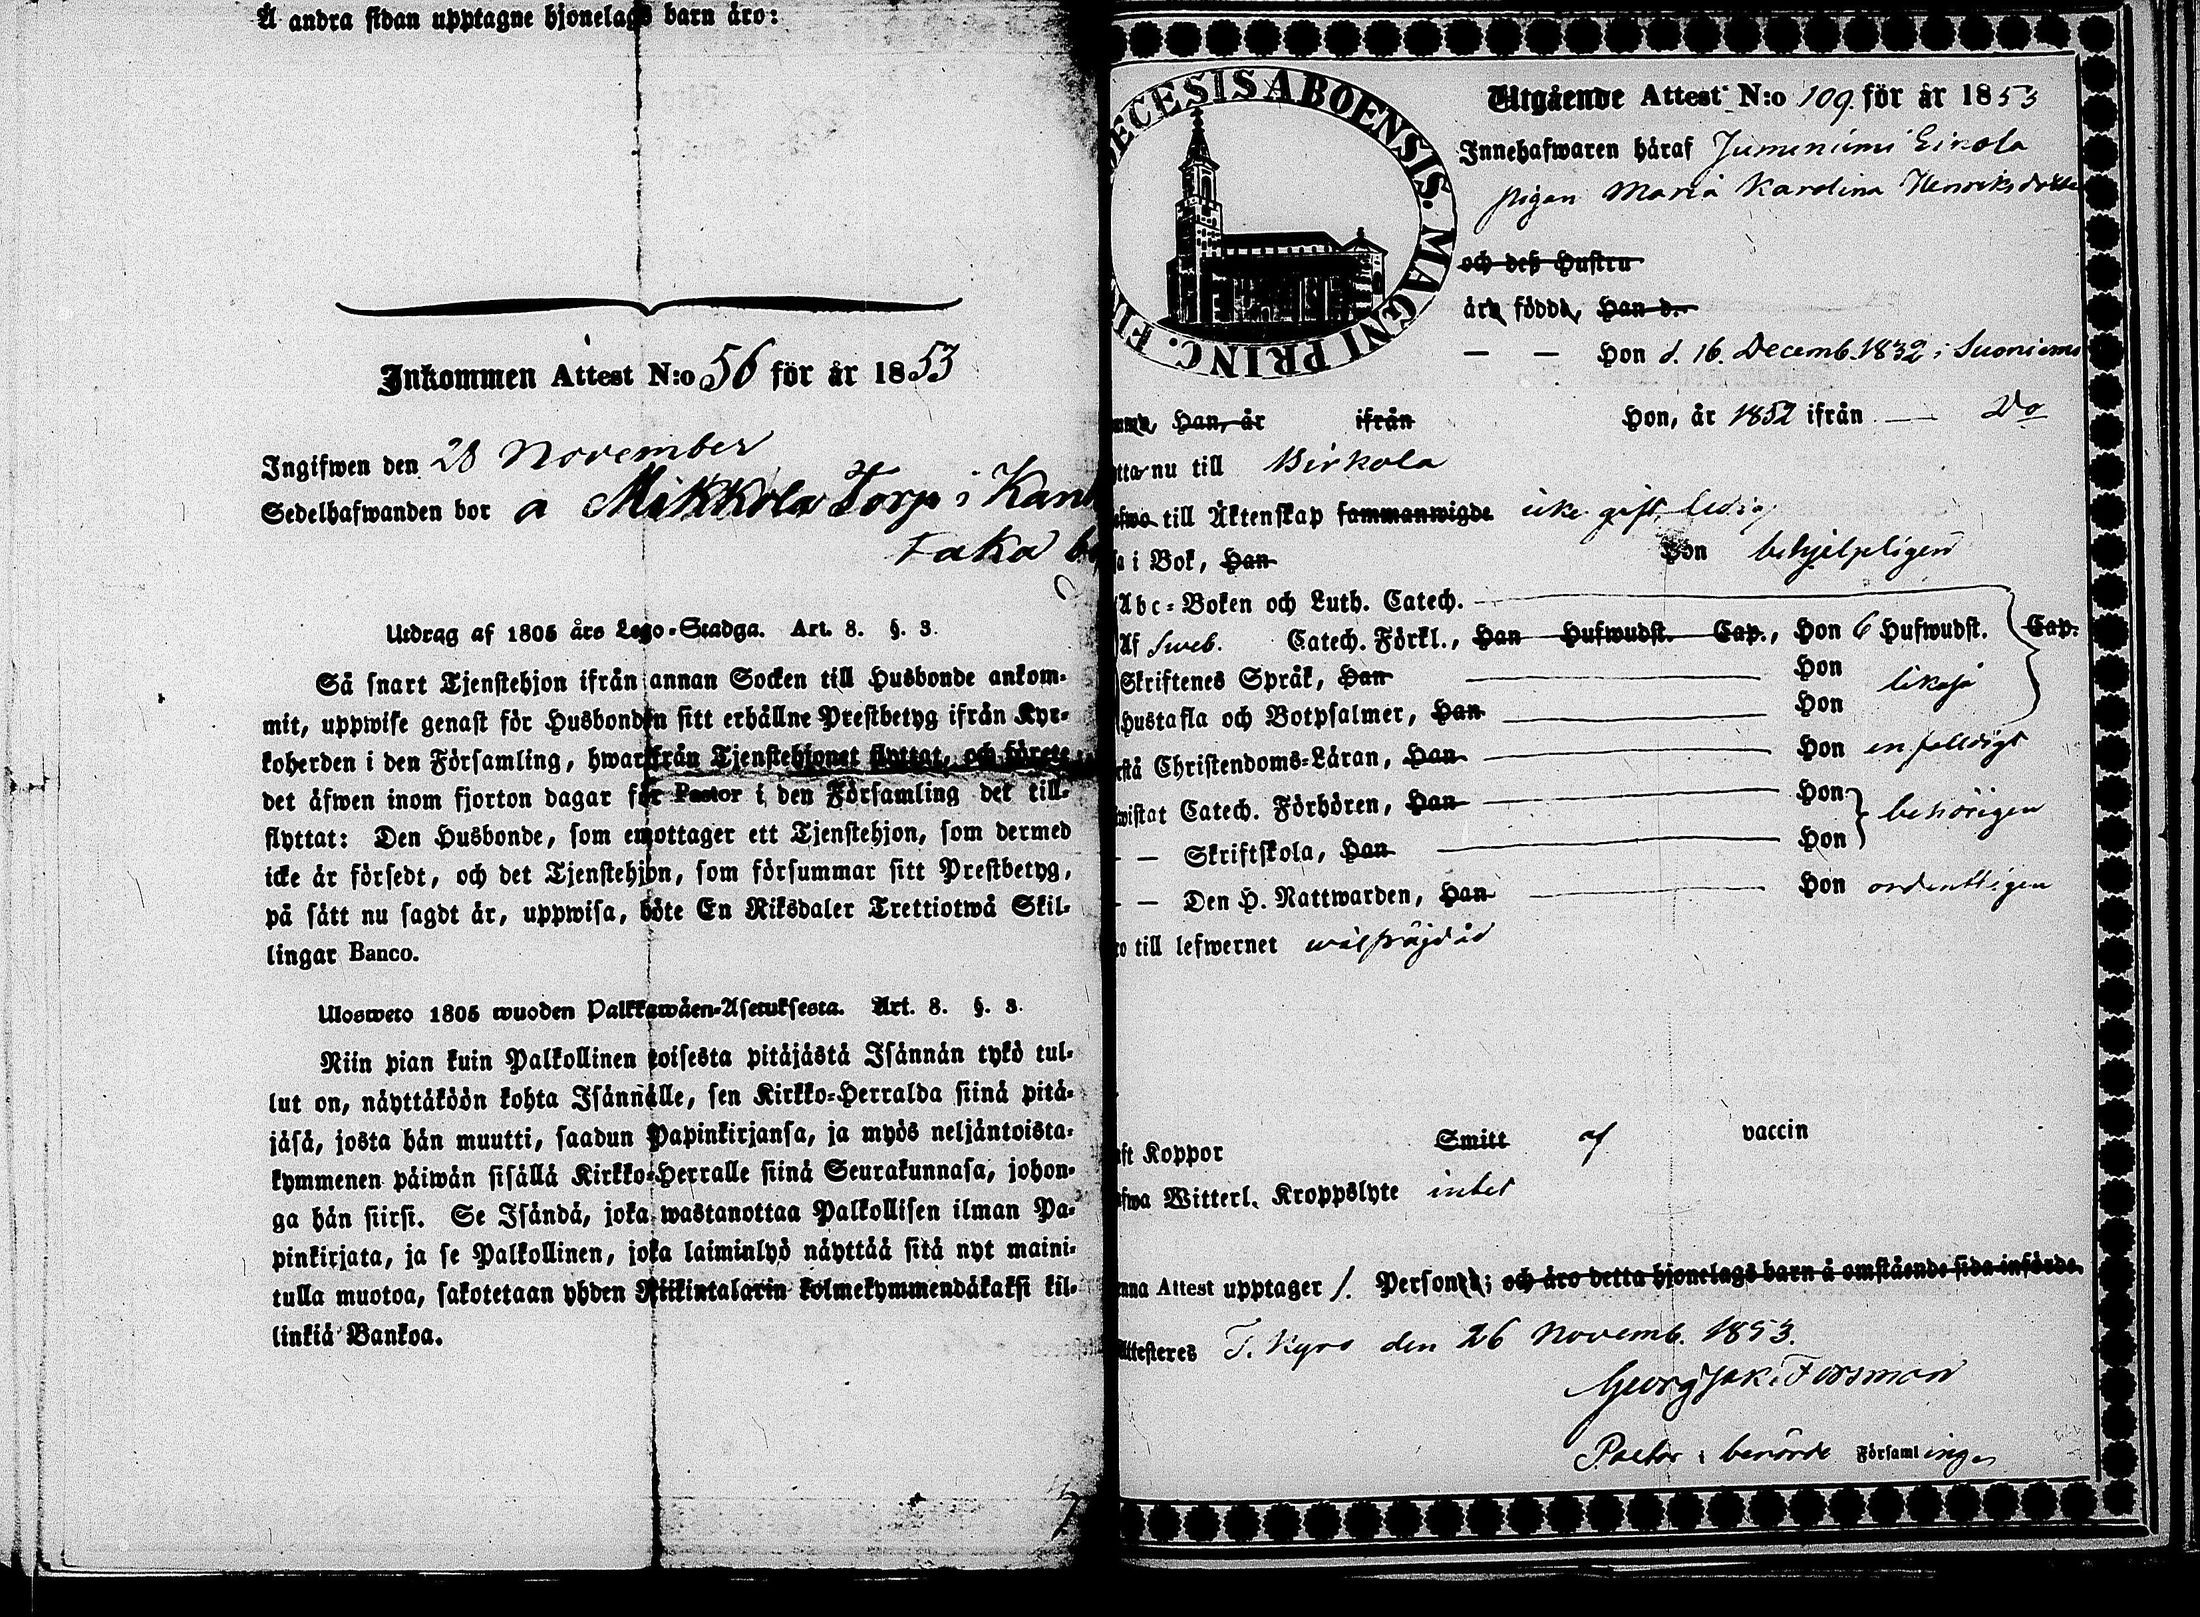 Å andra sidan upptagne hjonelags barn äro:
Inkommen Attest N:o 56 för år 1853
Ingifwen den 28 November
Sedelhafwanden bor å Mikkola Torp i
Utdrag af 1805 års Lego-Stadga. Art. 8. §. 3.
Så snart Tjenstehjon ifrån annan Socken till Husbonde ankom-
mit, uppwise genast för Husbonden sitt erhållne Prestbetyg ifrån Kyr-
koherden i den Församling, hwarifrån Tjenstehjonet flyttat, och förete
det äfwen inom fjorton dagar för Pastor i den Församling det till-
flyttat: Den Husbonde, som emottager ett Tjenstehjon, som dermed
icke är försedt, och det Tjenstehjon, som försummar sitt Prestbetyg,
på sätt nu sagdt är, uppwisa, böte En Riksdaler Trettiotwå Skil-
lingar Banco.
Ulosweto 1805 wuoden Palkkawäen-Asetuksesta. Art. 8. §. 3.
Niin pian kuin Palkollinen toisesta pitäjästä Isännän tykö tul-
lut on, näyttäköön kohta Isännälle, sen Kirkko-Herralda siinä pitä-
jäsä, josta hän muutti, saadun Papinkirjansa, ja myös neljäntoista-
kymmenen päiwän sisällä Kirkko-Herralle siinä Seurakunnasa, johon-
ga hän siirsi. Se Isändä, joka wastanottaa Palkollisen ilman Pa-
pinkirjata, ja se Palkollinen, joka laiminlyö näyttää sitä nyt maini-
tulla muotoa, sakotetaan yhden Riikintalarin kolmekymmendäkaksi kil-
linkiä Bankoa.
ECESIS ABOENSIS. MAGNI PRINC. FI
Utgående Attest N:o 109. för år 1853
Innehafwaren häraf Jumeniemi Eirola
pigan Maria Karolina Henriksdotter
och deß Hustru
äro födde, Han d.
— — Hon d. 16. Decemb. 1832 i Suoniemi
Han, år ifrån Hon, år 1852 ifrån — Do
nu till Birkola
till Äktenskap sammanwigde icke gift, ledig
i Bok, Han Hon behjelpligen
Abc-Boken och Luth. Catech.
Af Sweb. Catech. Förkl., Han Hufwudst. Cap., Hon 6 Hufwudst. Cap.
Skriftenes Språk, Han Hon likaså
Hustafla och Botpsalmer, Han Hon
Christendoms-Läran, Han Hon enfaldigt
wistat Catech. Förhören, Han Hon behörigen
— — Skriftskola, Han Hon
— — Den H. Nattwarden, Han Hon ordentligen
till lefwernet wälfräjdad
Koppor Smitt af vaccin
Witterl. Kroppslyte intet
Attest upptager 1. Personer; och äro detta hjonelags barn å omstående sida införde.
Attesteres T. Kyro den 26 Novemb. 1853.
Georg Jak. Forsman
Pastor i berörde Församlingen